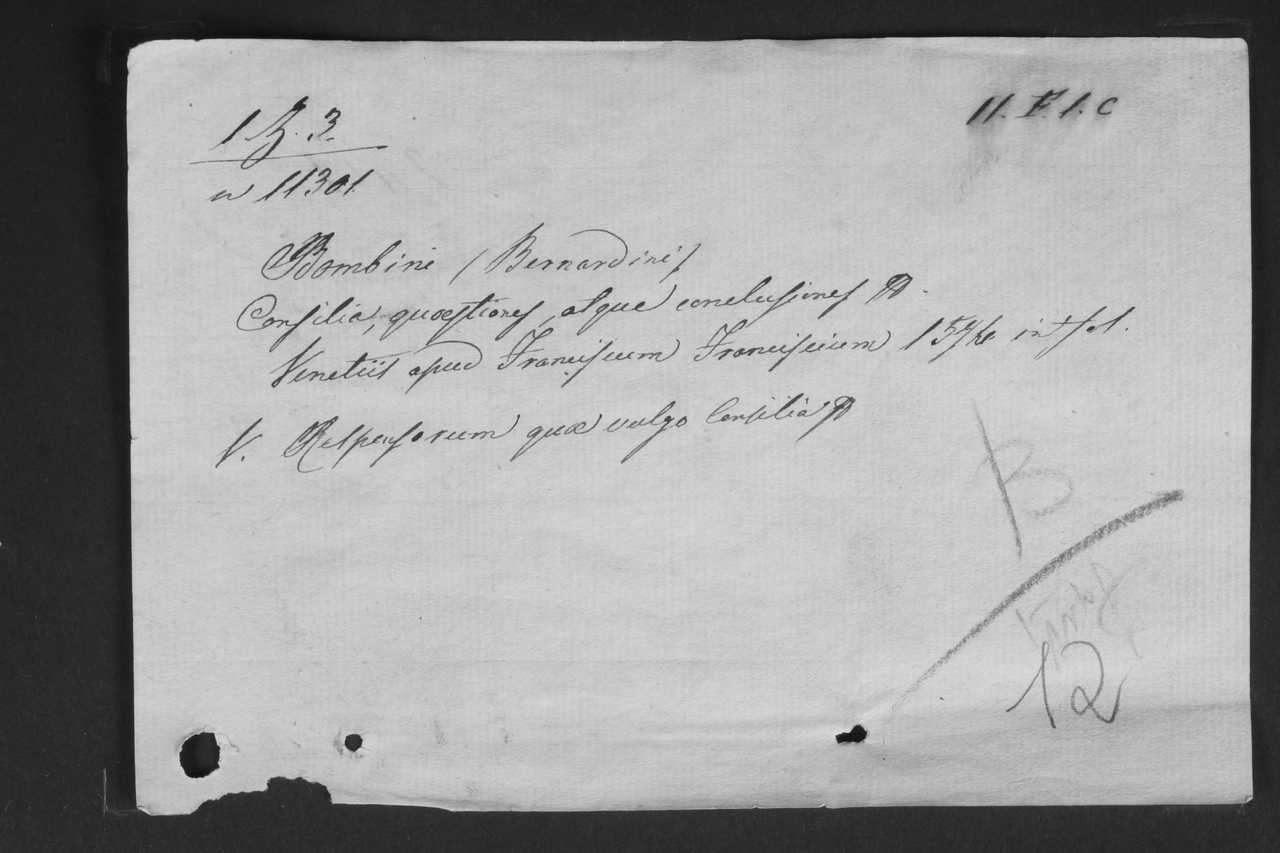 1 B. 3.
11. F. 1. c
n 11301
Bombini (Bernardini)
Consilia, quæstiones, atque conclusiones
Venetiis apud Franciscum Franciscium in fol.
V. Responsorum quæ vulgo Consilia
B
12